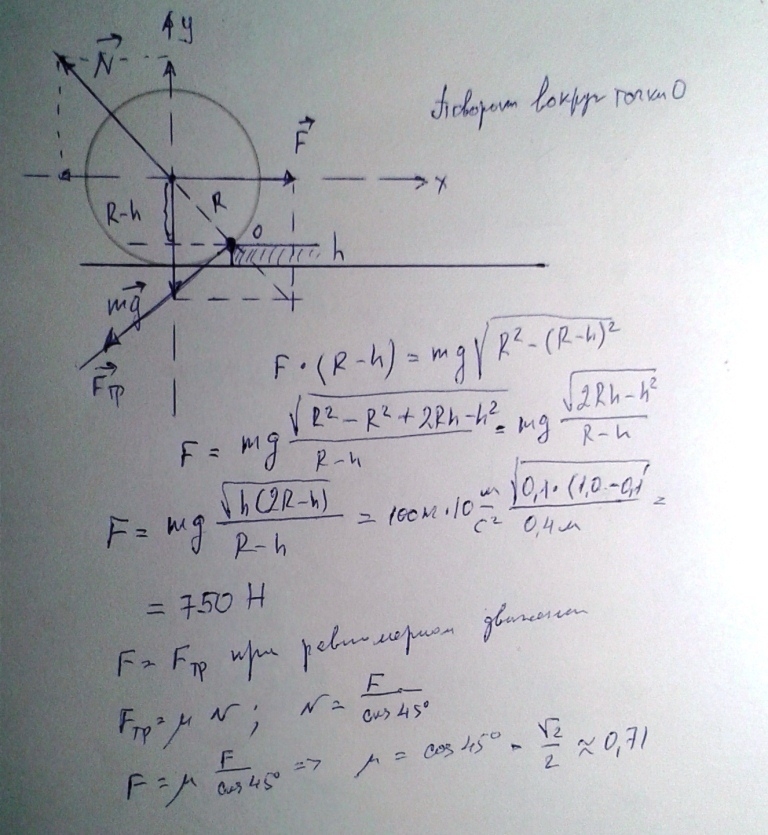 y
N
F
Поворот вокруг точки О
x
R-h
R
O
h
mg
Fтр
F · (R-h) = mg√(R² - (R-h)²)
F = mg √(R² - R² + 2Rh - h²) / (R-h) = mg √(2Rh - h²) / (R-h)
F = mg √(h(2R-h)) / (R-h) = 100кг · 10 м/с² √(0,1 · (1,0-0,1) / 0,4м =
= 750 Н
F = Fтр при равномерном движении
Fтр = μ N ; N = F / cos 45°
F = μ F / cos 45° => μ = cos 45° = √2 / 2 ≈ 0,71